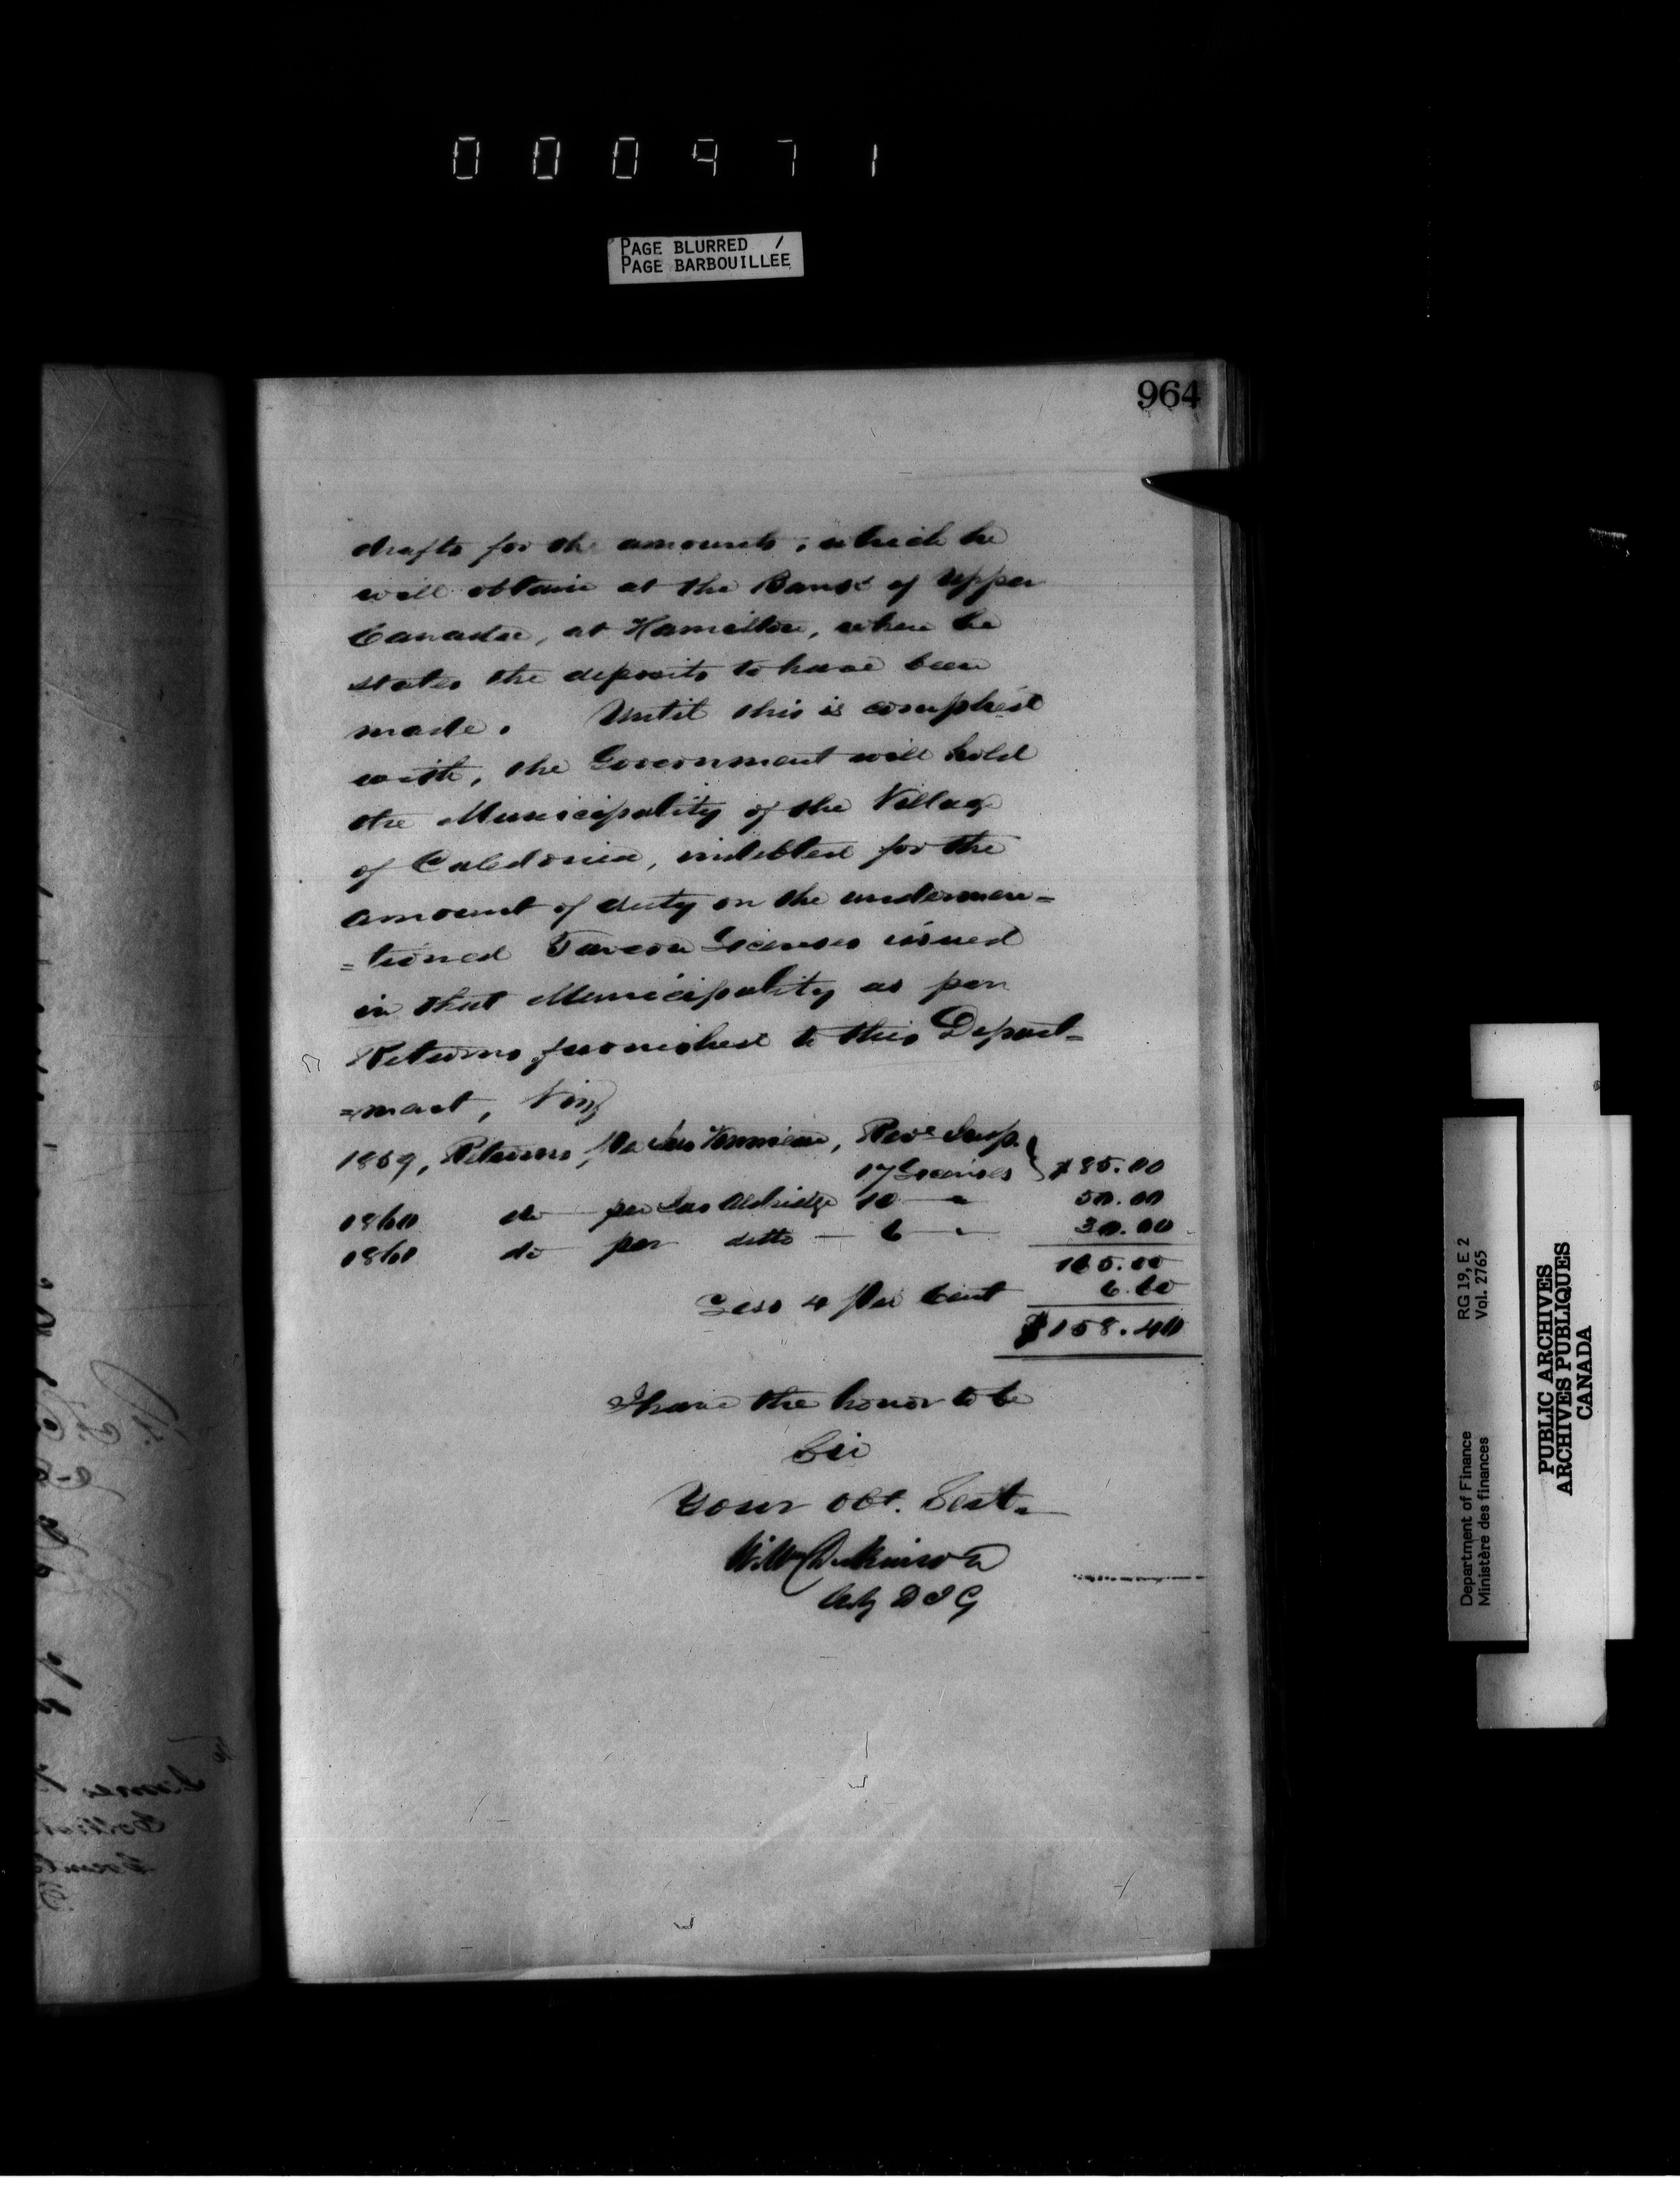 000971
PAGE BLURRED /
PAGE BARBOUILLÉE
964
drafts for the amounts, which he
will obtain at the Bank of Upper
Canada, at Hamilton, where he
states the deposits to have been
made. Until this is complied
with, the Government will hold
the Municipality of the Village
of Caledonia, indebted for the
amount of duty on the undermen=
=tioned Tavern Licenses issued
in that Municipality as per
Returns furnished to this Depart=
=ment, Viz
1859, Returns, per Revе Insp.
17 Licenses } $85.00
1860 do per Jas Aldridge 10 " 50.00
1861 do per ditto 6 " 30.00
165.00
Less 4 per Cent 6.60
$158.40
I have the honor to be
Sir
Your obt. Servt.
Wm Dickinson
Actg D I G
RG 19, E 2
Vol. 2765
Department of Finance
Ministère des finances
PUBLIC ARCHIVES
ARCHIVES PUBLIQUES
CANADA